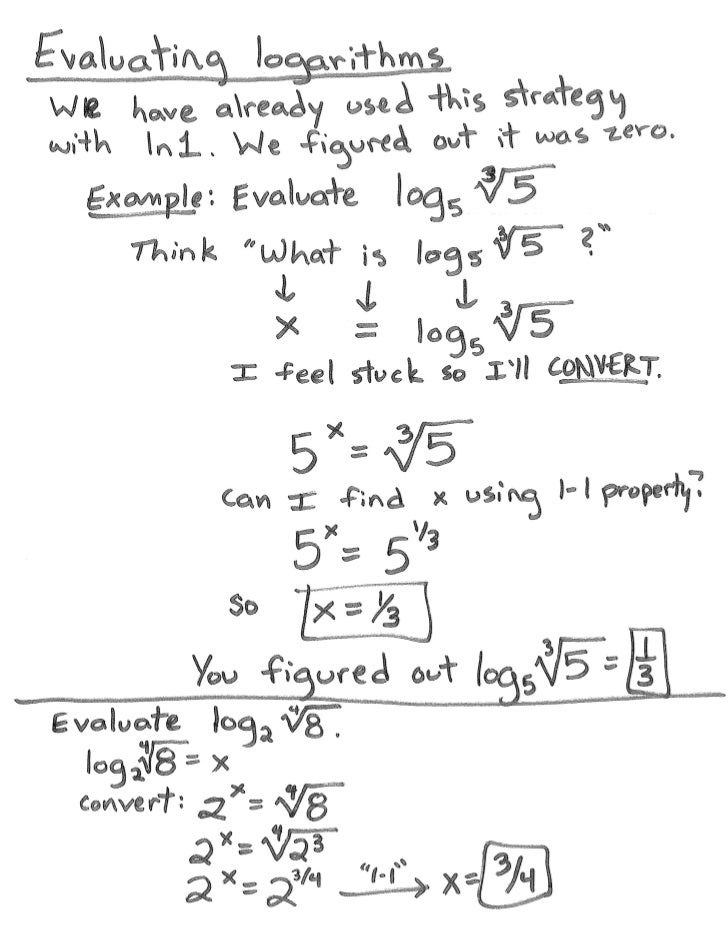 Evaluating logarithms
We have already used this strategy
with ln1. We figured out it was zero.
Example: Evaluate log₅ ∛5
Think "What is log₅ ∛5 ?"
↓ ↓ ↓
x = log₅ ∛5
I feel stuck so I'll CONVERT.
5ˣ = ∛5
can I find x using 1-1 property?
5ˣ = 5^1/3
so x = 1/3
You figured out log₅ ∛5 = 1/3
Evaluate log₂ ∜8.
log₂ ∜8 = x
convert: 2ˣ = ∜8
2ˣ = ∜2³
2ˣ = 2^3/4 "1-1" → x = 3/4